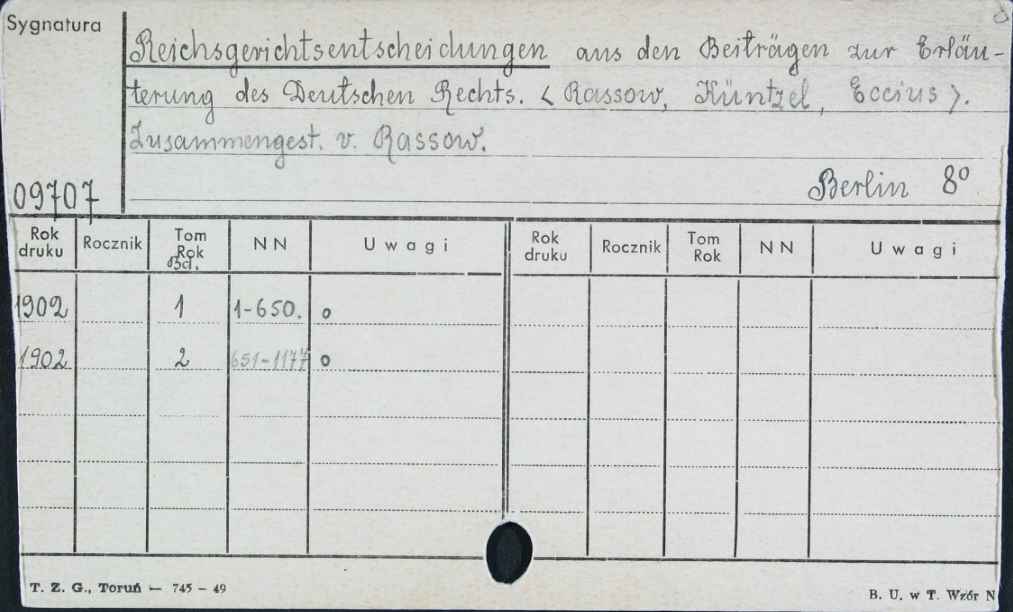 Sygnatura
Reichsgerichtsentscheidungen aus den Beiträgen zur Erläu-
terung des Deutschen Rechts. < Rassow, Küntzel, Eccius >.
Zusammengest. v. Rassow.
Berlin 8º
09707
Rok druku Rocznik Tom Rok Bd. NN Uwagi Rok druku Rocznik Tom Rok NN Uwagi
1902 1 1-650. o
1902 2 651-1177 o
T. Z. G., Toruń — 745 – 49
B. U. w T. Wzór N